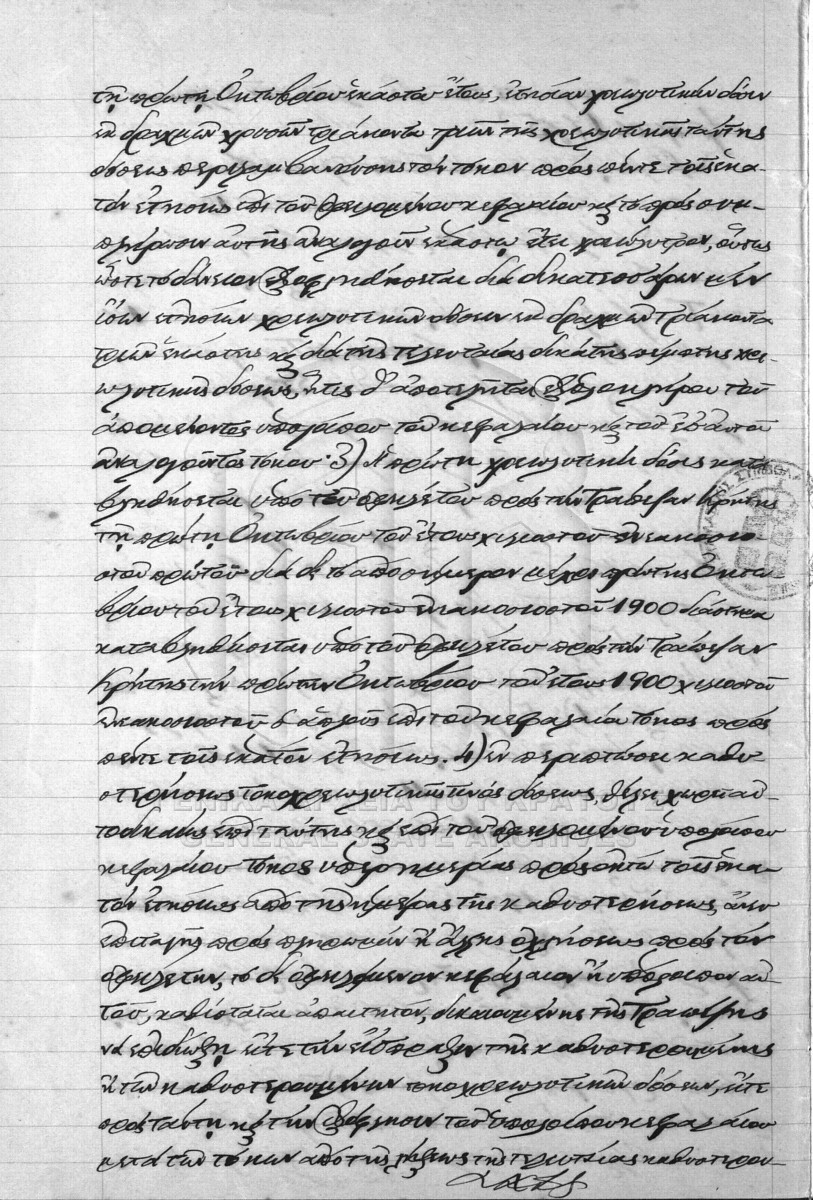 τῇ πρώτῃ Ὀκτωβρίου ἑκάστου ἔτους, ἐτησίαν χρεωλυτικὴν δόσιν
ἐκ δραχμῶν χρυσῶν τριάκοντα τριῶν τῆς χρεωλυτικῆς ταύτης
δόσεως περιλαμβανούσης τὸν τόκον πρὸς πέντε τοῖς ἑκα-
τὸν ἐτησίως ἐπὶ τοῦ ὀφειλομένου κεφαλαίου καὶ τὸ πρὸς συμ-
πλήρωσιν αὐτῆς ἀναλογοῦν ἑκάστῳ ἔτει χρεώλυτρον, οὕτως
ὥστε τὸ δάνειον ἐξοφληθήσεται διὰ δεκατεσσάρων μὲν
ἴσων ἐτησίων χρεωλυτικῶν δόσεων ἐκ δραχμῶν τριάκοντα
τριῶν ἑκάστης καὶ διὰ τῆς τελευταίας δεκάτης πέμπτης χρε-
ωλυτικῆς δόσεως, ἥτις θ' ἀποτελῆται ἐξ ὁλοκλήρου τοῦ
ἀπομείναντος ὑπολοίπου τοῦ κεφαλαίου καὶ τοῦ ἐπ' αὐτοῦ
ἀναλογοῦντος τόκου. 3) Ἡ πρώτη χρεωλυτικὴ δόσις κατα-
βληθήσεται ὑπὸ τοῦ ὀφειλέτου πρὸς τὴν Τράπεζαν Κρήτης
τῇ πρώτῃ Ὀκτωβρίου τοῦ ἔτους χιλιοστοῦ ἐννεακοσιο-
στοῦ πρώτου διὰ δὲ τὸ ἀπὸ σήμερον μέχρι πρώτης Ὀκτω-
βρίου τοῦ ἔτους χιλιοστοῦ ἐννεακοσιοστοῦ 1900 διάστημα
καταβληθήσεται ὑπὸ τοῦ ὀφειλέτου πρὸς τὴν Τράπεζαν
Κρήτης τὴν πρώτην Ὀκτωβρίου τοῦ ἔτους 1900 χιλιοστοῦ
ἐννεακοσιοστοῦ ὁ ἁπλοῦς ἐπὶ τοῦ κεφαλαίου τόκος πρὸς
πέντε τοῖς ἑκατὸν ἐτησίως. 4) Ἐν περιπτώσει καθυ-
στερήσεως τοκοχρεωλυτικῆς τινὸς δόσεως, θέλει χωρεῖ αὐ-
τοδικαίως ἐπὶ ταύτης καὶ ἐπὶ τοῦ ὀφειλομένου ὑπολοίπου
κεφαλαίου τόκος ὑπερημερίας πρὸς ὀκτὼ τοῖς ἑκα-
τὸν ἐτησίως ἀπὸ τῆς ἡμέρας τῆς καθυστερήσεως, ἄνευ
ἐπιταγῆς πρὸς πληρωμὴν ἢ ἄλλης ὀχλήσεως πρὸς τὸν
ὀφειλέτην, τὸ δὲ ὀφειλόμενον κεφάλαιον ἢ ὑπόλοιπον αὐ-
τοῦ, καθίσταται ἀπαιτητόν, δικαιουμένης τῆς Τραπέζης
νὰ ἐπιδιώξῃ εἴτε τὴν εἴσπραξιν τῆς καθυστερουμένης
ἢ τῶν καθυστερουμένων τοκοχρεωλυτικῶν δόσεων, εἴτε
πρὸς ταύτῃ καὶ τὴν ἐξόφλησιν τοῦ ὑπολοίπου κεφαλαίου
μετὰ τῶν τόκων ἀπὸ τῆς λήξεως τῆς τελευταίας καθυστερου-
ΓΕΝΙΚΑ ΑΡΧΕΙΑ ΤΟΥ ΚΡΑΤΟΥΣ
GENERAL STATE ARCHIVES